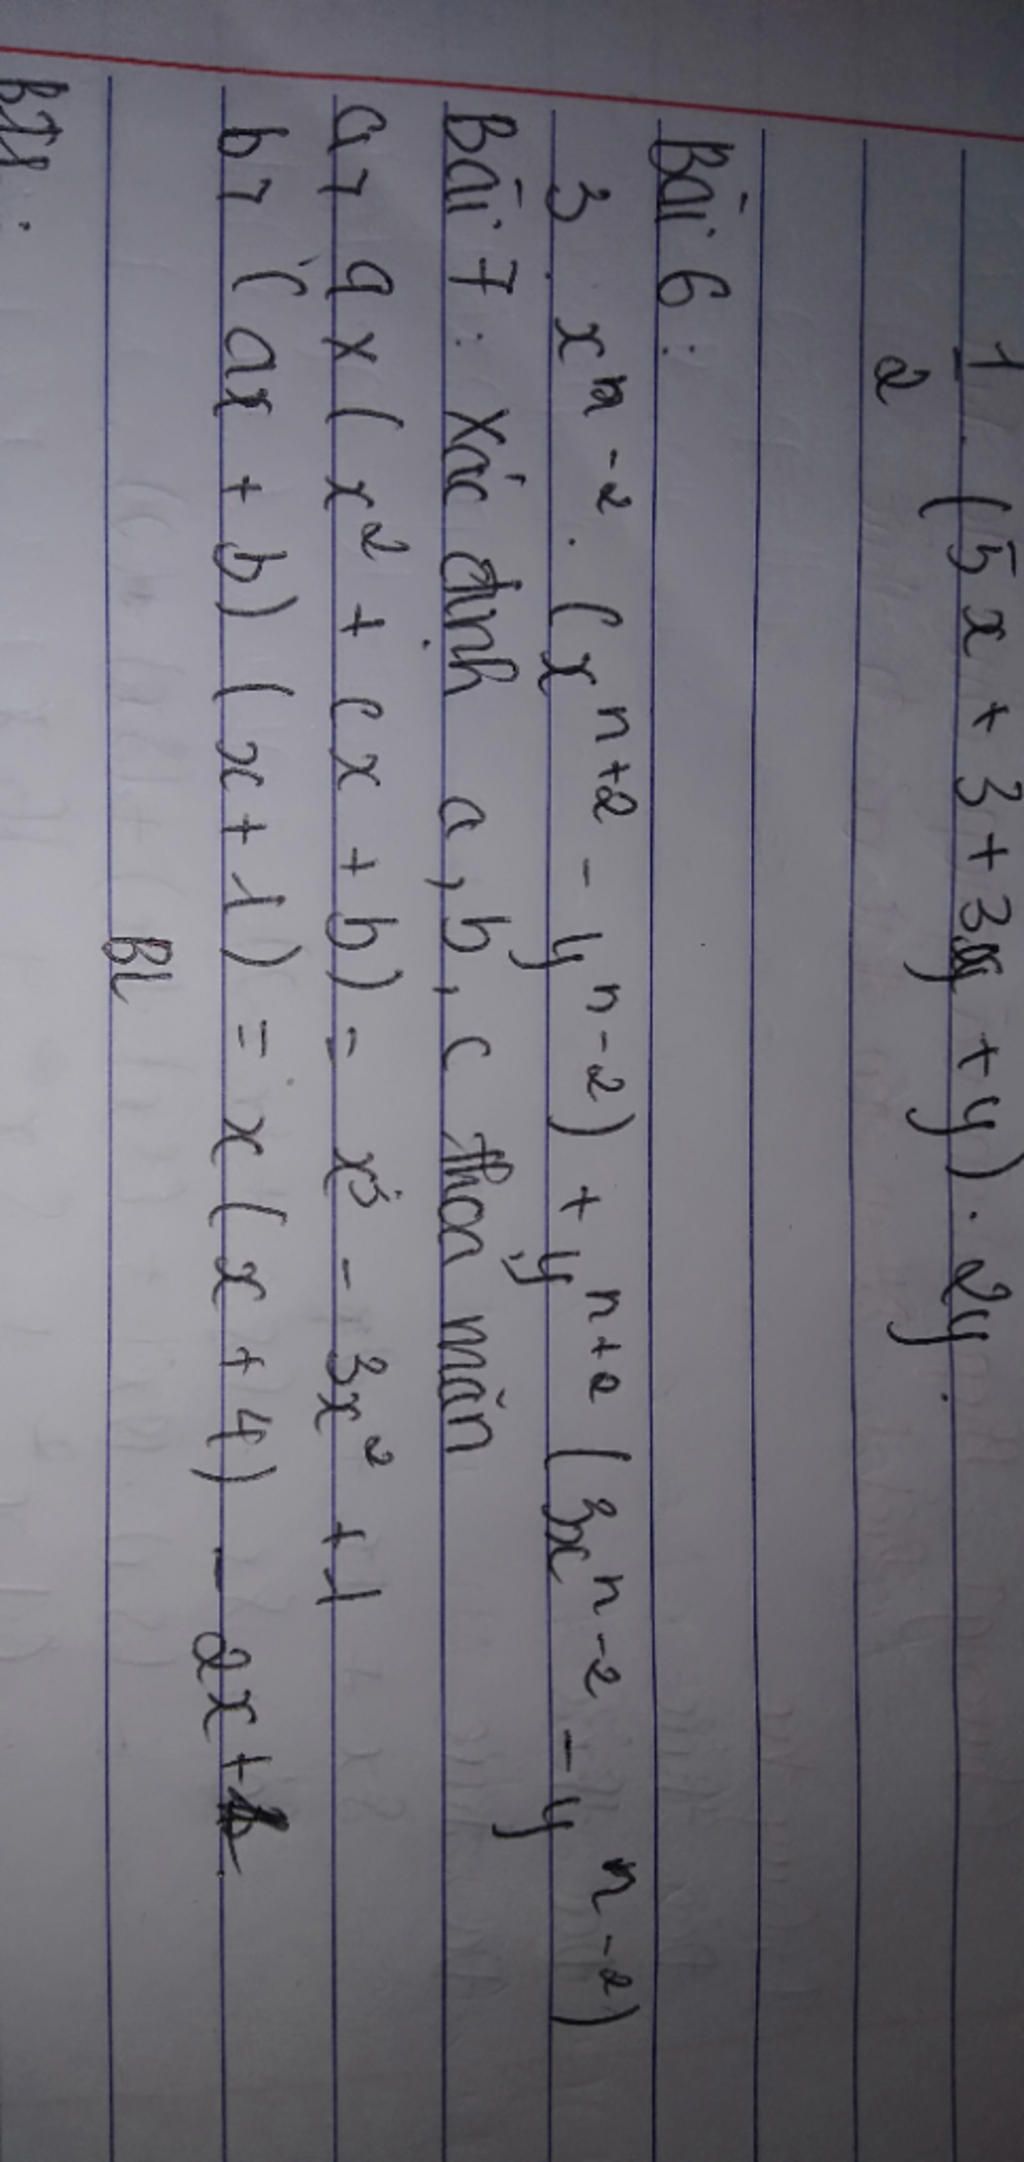 1/2 . (5x + 3 + 3y + y) . 2y.
Bài 6 :
3 x^n-2 . (x^n+2 - y^n-2) + y^n+2 (3x^n-2 - y^n-2)
Bài 7 : Xác định a, b, c thoả mãn
a, 9x (x² + cx + b) = x³ - 3x² + 1
b, (ax + b) (x + 1) = x (x + 4) - 2x +
BL